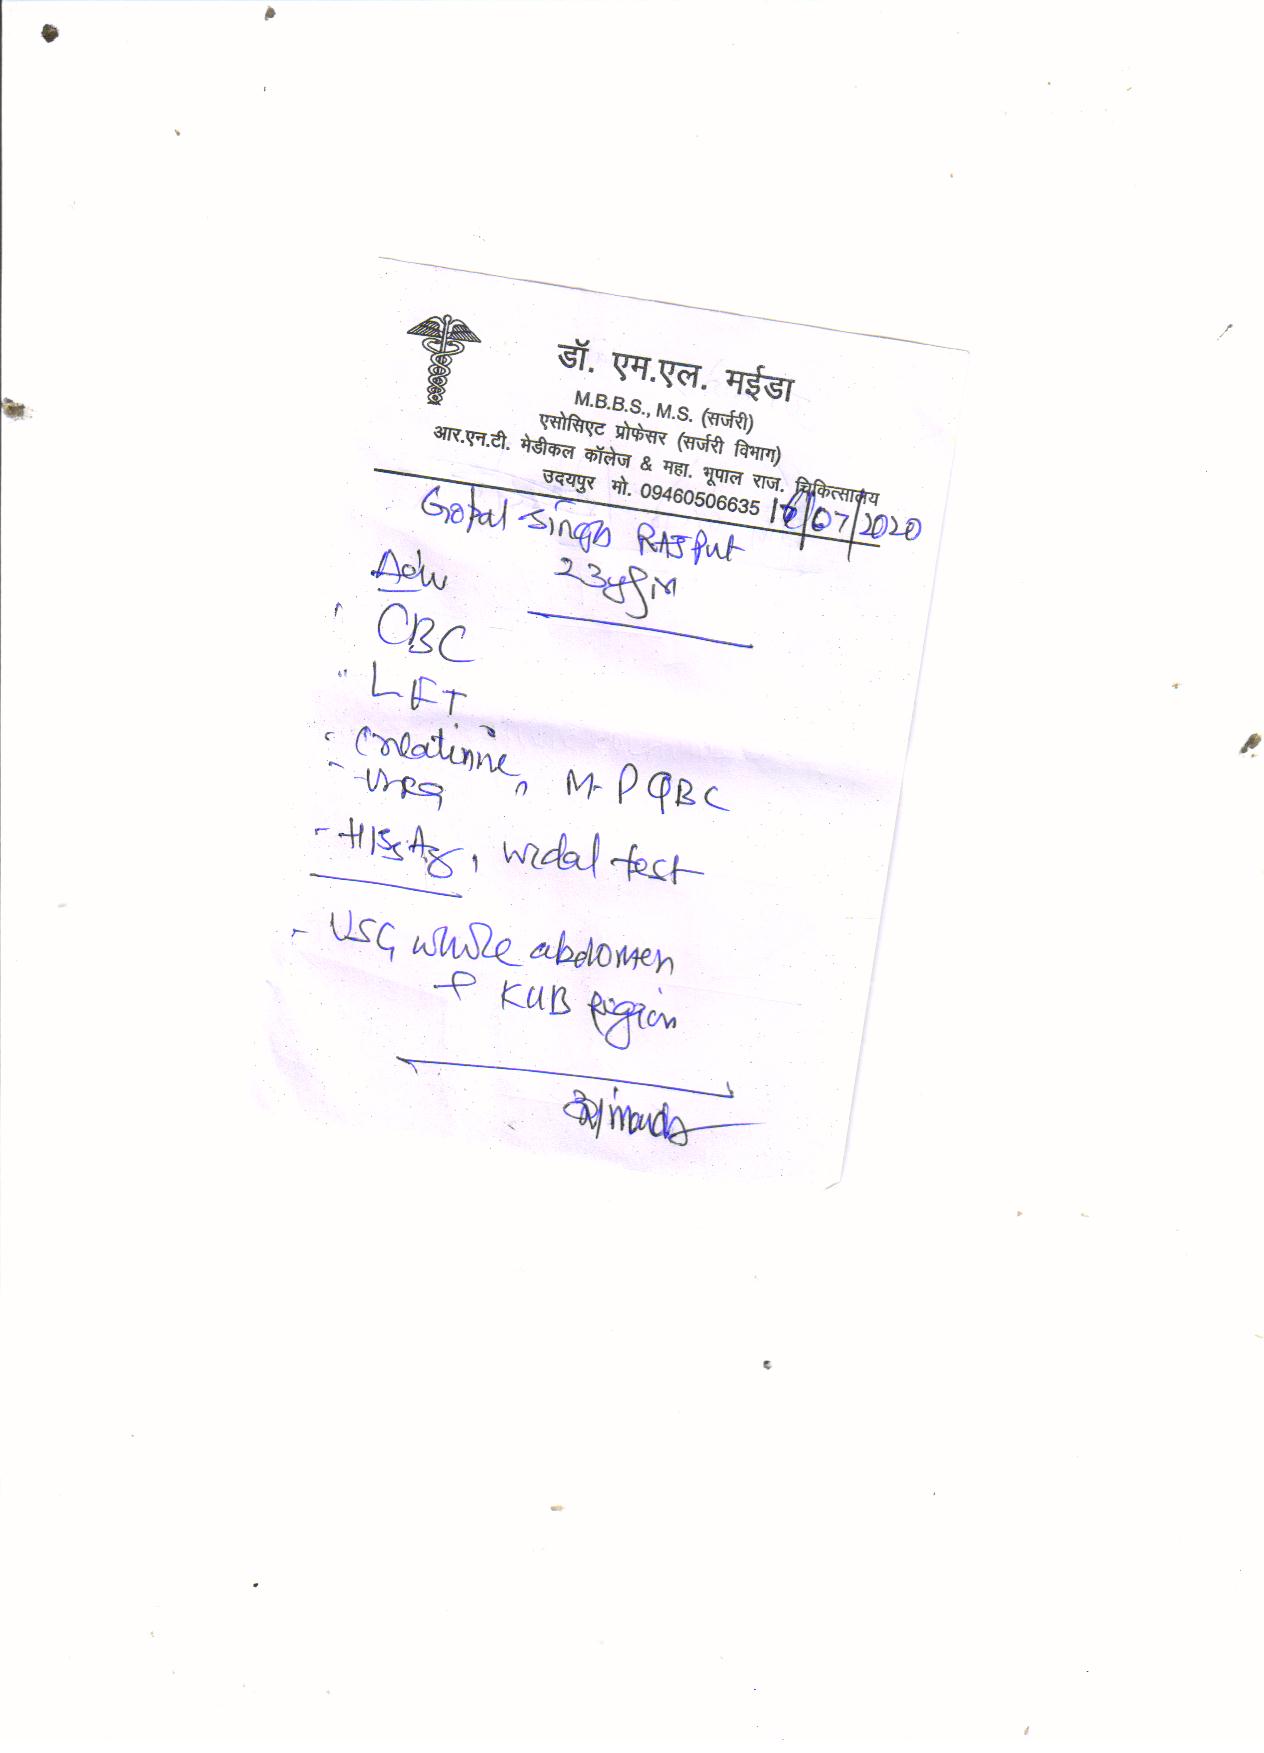 डॉ. एम.एल. मईडा
M.B.B.S., M.S. (सर्जरी)
एसोसिएट प्रोफेसर (सर्जरी विभाग)
आर.एन.टी. मेडीकल कॉलेज & महा. भूपाल राज. चिकित्सालय
उदयपुर मो. 09460506635 /07/2020
Gopal Singh RAJPut
Adv
CBC
LFT
Creatinine, M-P QBC
HBsAg, widal test
USG whole abdomen
+ KUB region